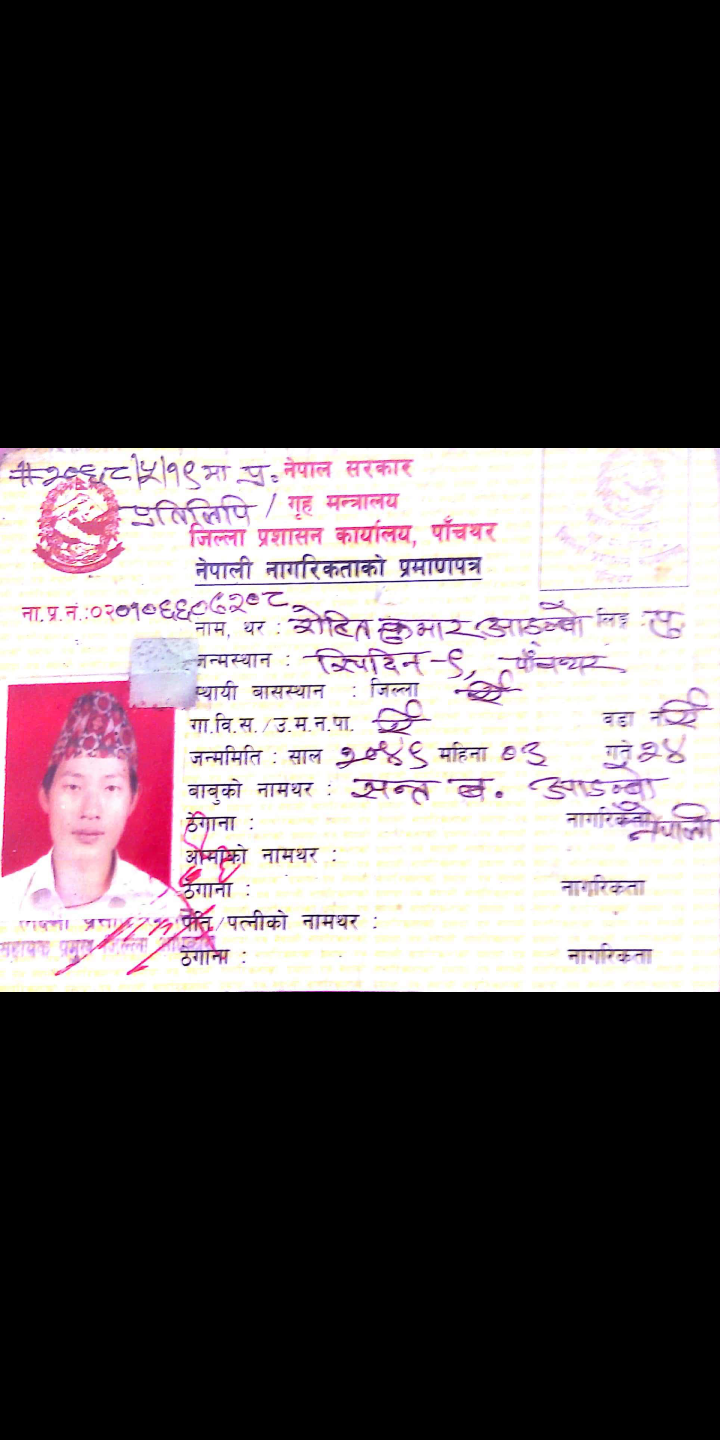 २०६८/५/१९ मा प्र. नेपाल सरकार
प्रतिलिपि / गृह मन्त्रालय
जिल्ला प्रशासन कार्यालय, पाँचथर
नेपाली नागरिकताको प्रमाणपत्र
ना.प्र.नं.:
नाम, थर : रोहित कुमार आङ्बो लिङ्ग : पु.
जन्मस्थान : सिदिन-९, पाँचथर
स्थायी बासस्थान : जिल्ला ऐ ऐ
गा.वि.स./उ.म.न.पा. ऐ ऐ वडा नं ऐ ऐ
जन्ममिति : साल २०४९ महिना ०३ गते २४
बाबुको नामथर : सन्त ब. आङबो
ठेगाना : नागरिकता नेपाली
आमाको नामथर :
ठेगाना : नागरिकता
पति/पत्नीको नामथर :
ठेगाना : नागरिकता